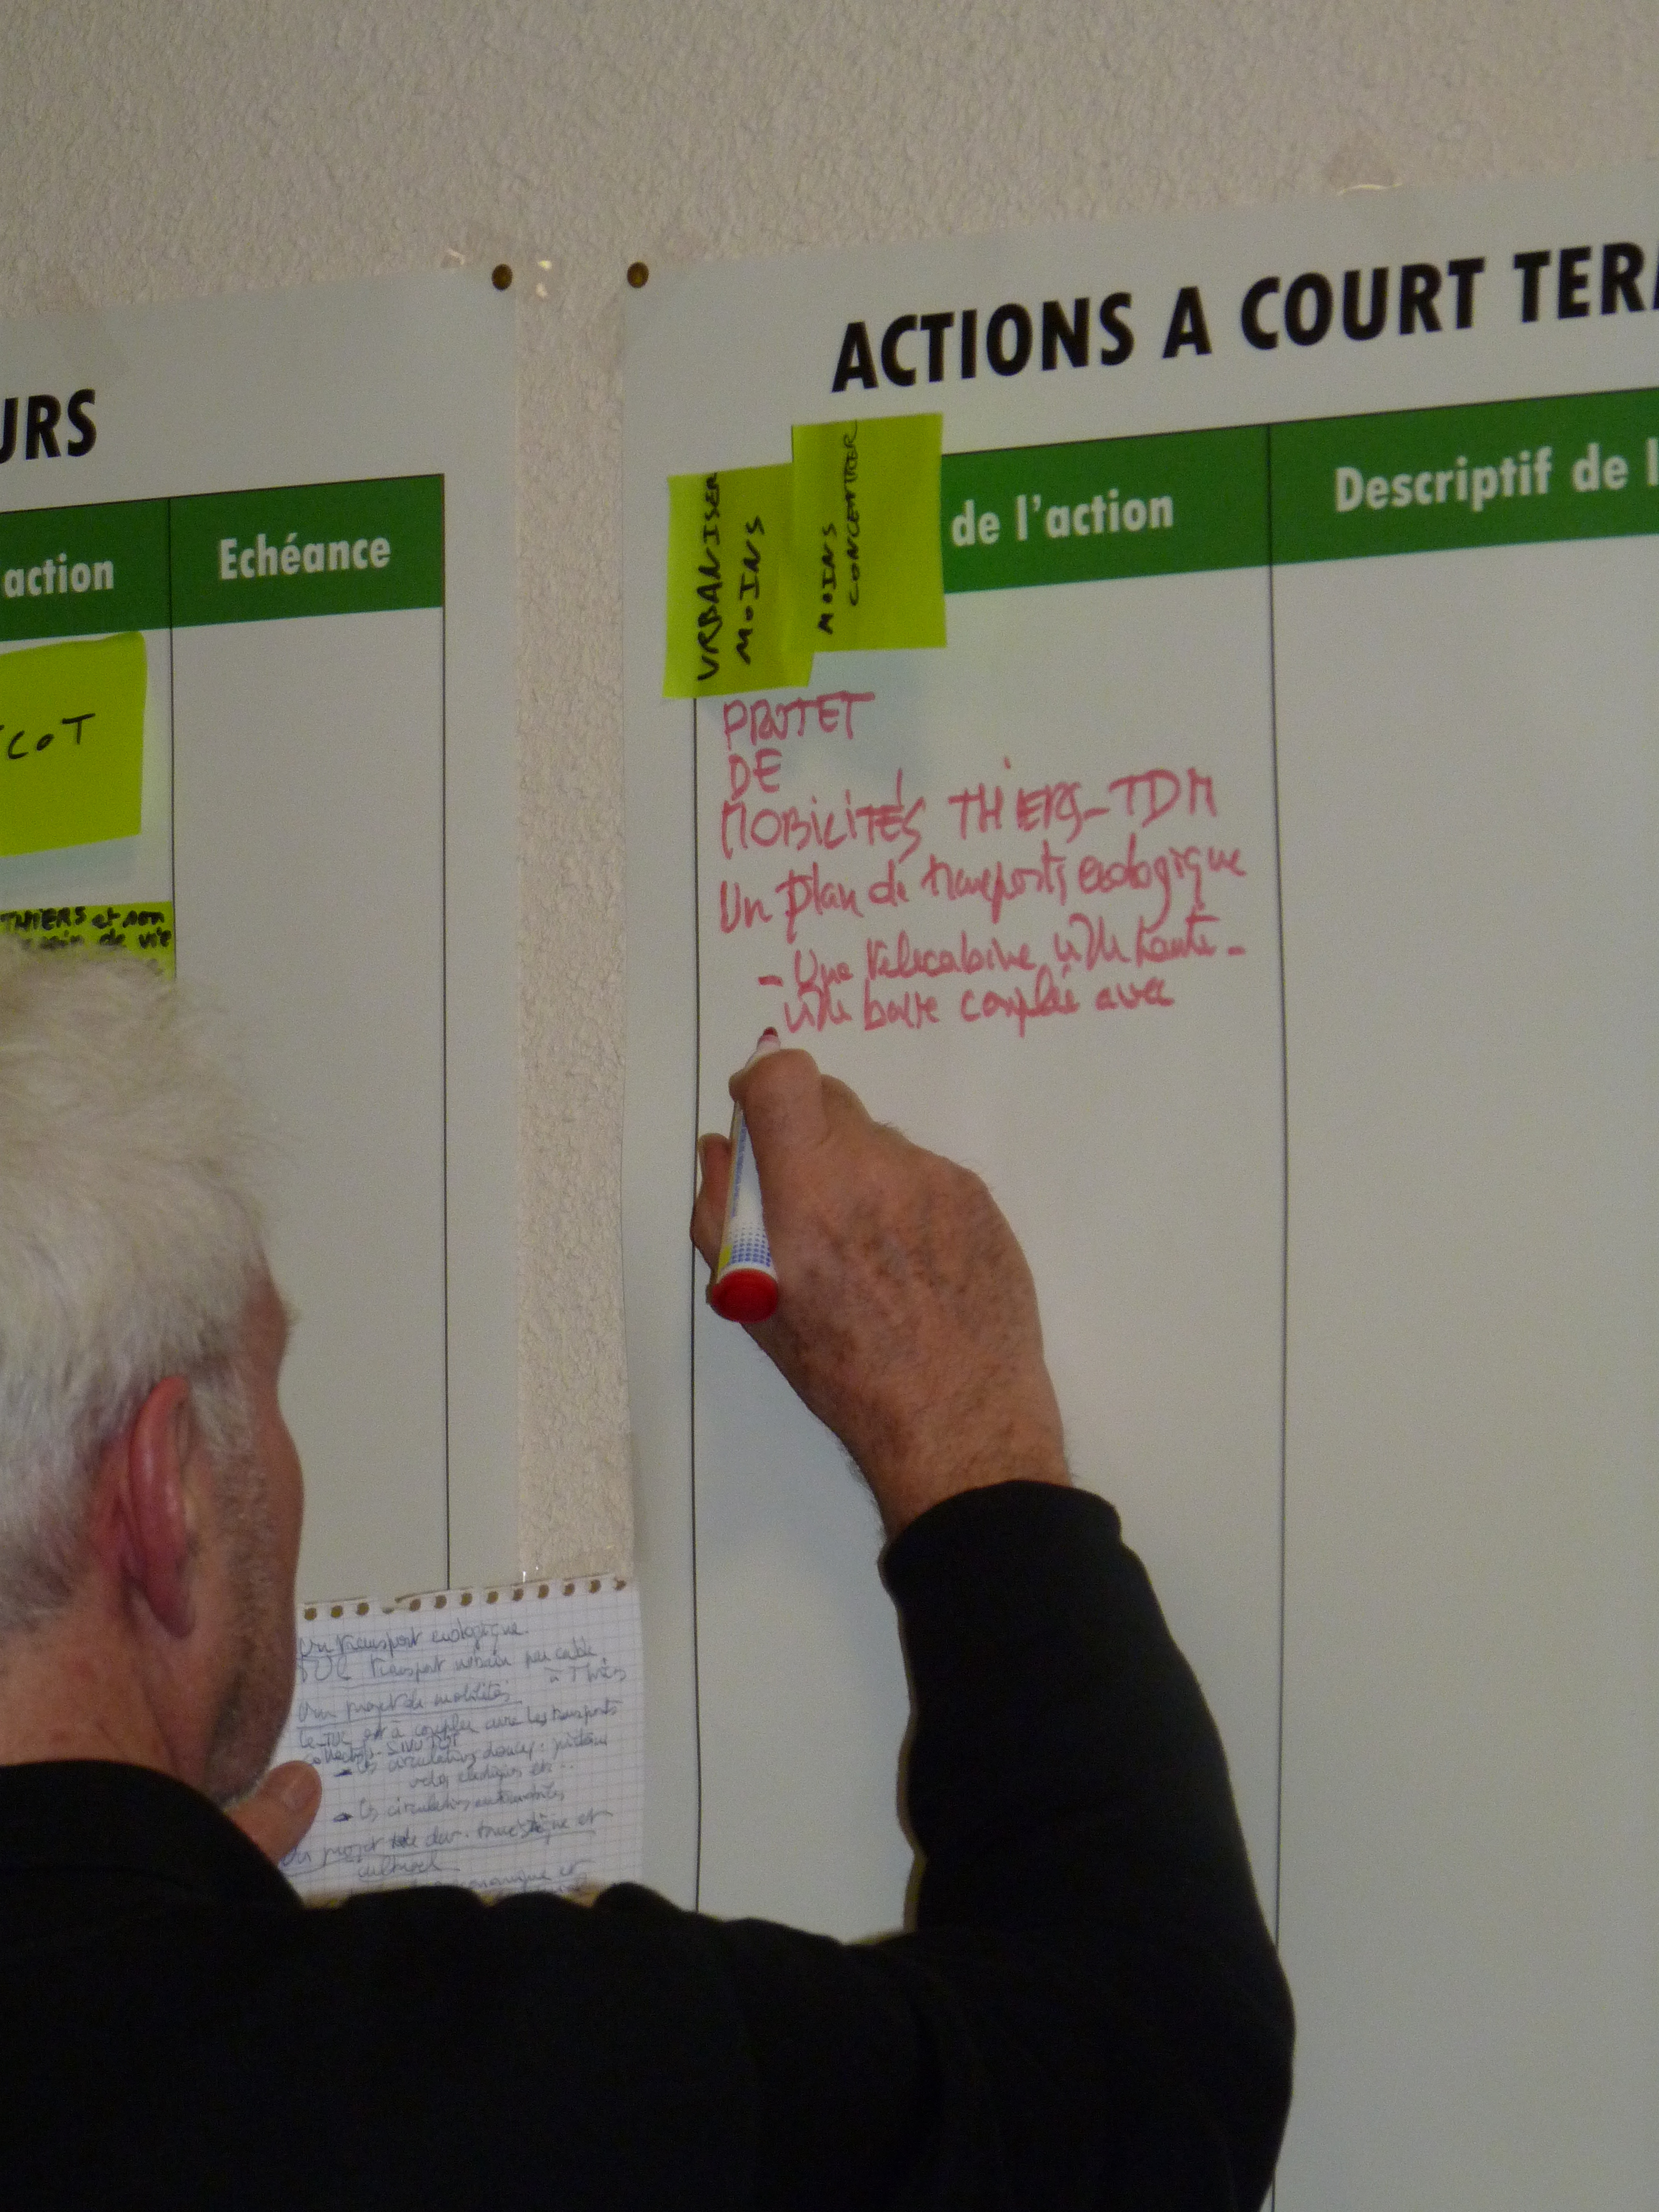 URS
action
Echéance
COT
THIERS et non
de vie
ACTIONS A COURT TER
de l'action
Descriptif de l
URBANISER
MOINS
MOINS
CONCENTRER
PROJET
DE
MOBILITÉS THIERS-TDM
Un plan de transports ecologique
- Une telecabine ville haute -
ville basse couplée avec
Un transport ecologique.
TUC transport urbain par cable
à Thiers
Un projet de mobilités
Le TUC est à coupler avec les transports
collectifs
- Les circulations douces : piétons
velos electriques etc...
- Les circulations automobiles
Un projet de dev. touristique et
culturel